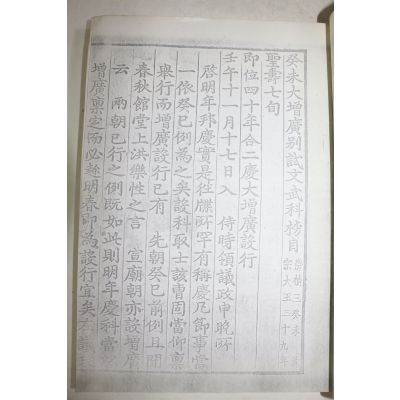 癸未大增廣別試文武科榜目
崇禎三癸未
宗大王三十九年
聖壽七旬
即位四十年合二慶大增廣設行
壬午十一月十七日入 侍時領議政申晚所
啓明年邦慶實是往牒所罕有稱慶凡節事當
一依癸巳例為之矣設科取士該曹固當仰稟
舉行而增廣設行已有 先朝癸巳前例且聞
春秋館堂上洪樂性之言 宣廟朝亦設增廣
云 兩朝已行之例既如此則明年慶科當
增廣稟定而必趁明春即為設行宜矣